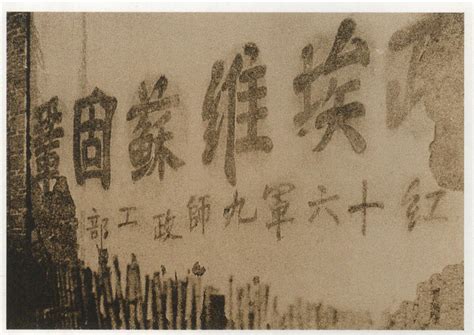 鞏固蘇维埃
红十六軍九師政工部